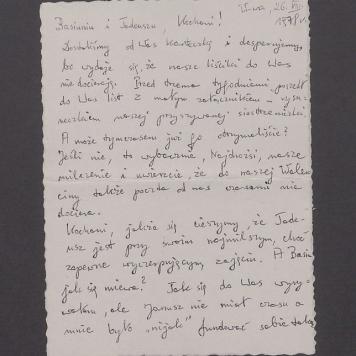 W-wa, 26.VIII.
1978 r.
Basiuniu i Tadeuszu, Kochani!
Dostaliśmy od Was karteczkę i desperujemy,
bo wydaje się, że nasze liściki do Was
nie docierają. Przed trzema tygodniami poszedł
do Was list z małym załącznikiem –
naszej przyszywanej siostrzeniczki.
A może tymczasem już go otrzymaliście?
Jeśli nie, to wybaczcie, Najdrożsi, nasze
milczenie i wierzcie, że do naszej
także poczta od nas czasami nie
dociera.
Kochani, jakże się cieszymy, że Tade-
usz jest przy swoim najmilszym, choć
zapewne wyczerpującym zajęciu. A Basia
jak się miewa? Jak się do Was wyry-
wałam, ale Janusz nie miał czasu a
mnie było „nijak” fundować sobie taką